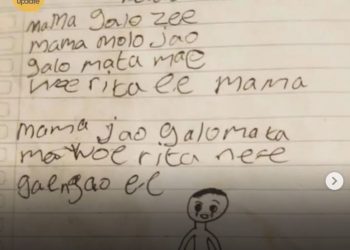 update
mama galo zee
mama molo jao
galo mata mae
woe rita ee mama
mama jao galo mata
mae woe rita nese
gaengao ee